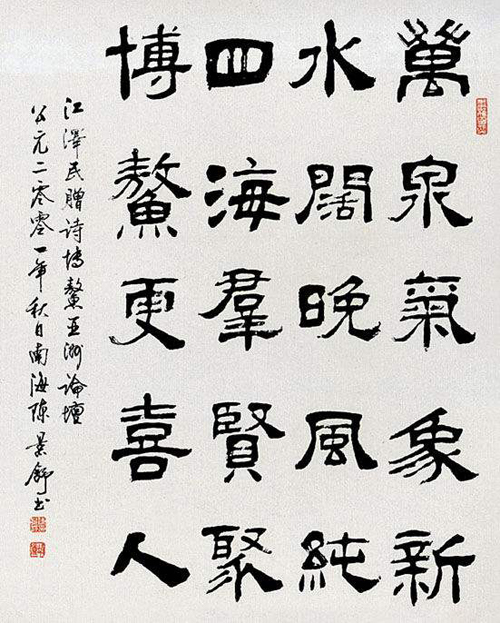 萬泉氣象新
水闊晚風純
四海羣賢聚
博鰲更喜人
江澤民贈詩博鰲亚洲論壇
公元二零零一年秋日南海陳景舒书